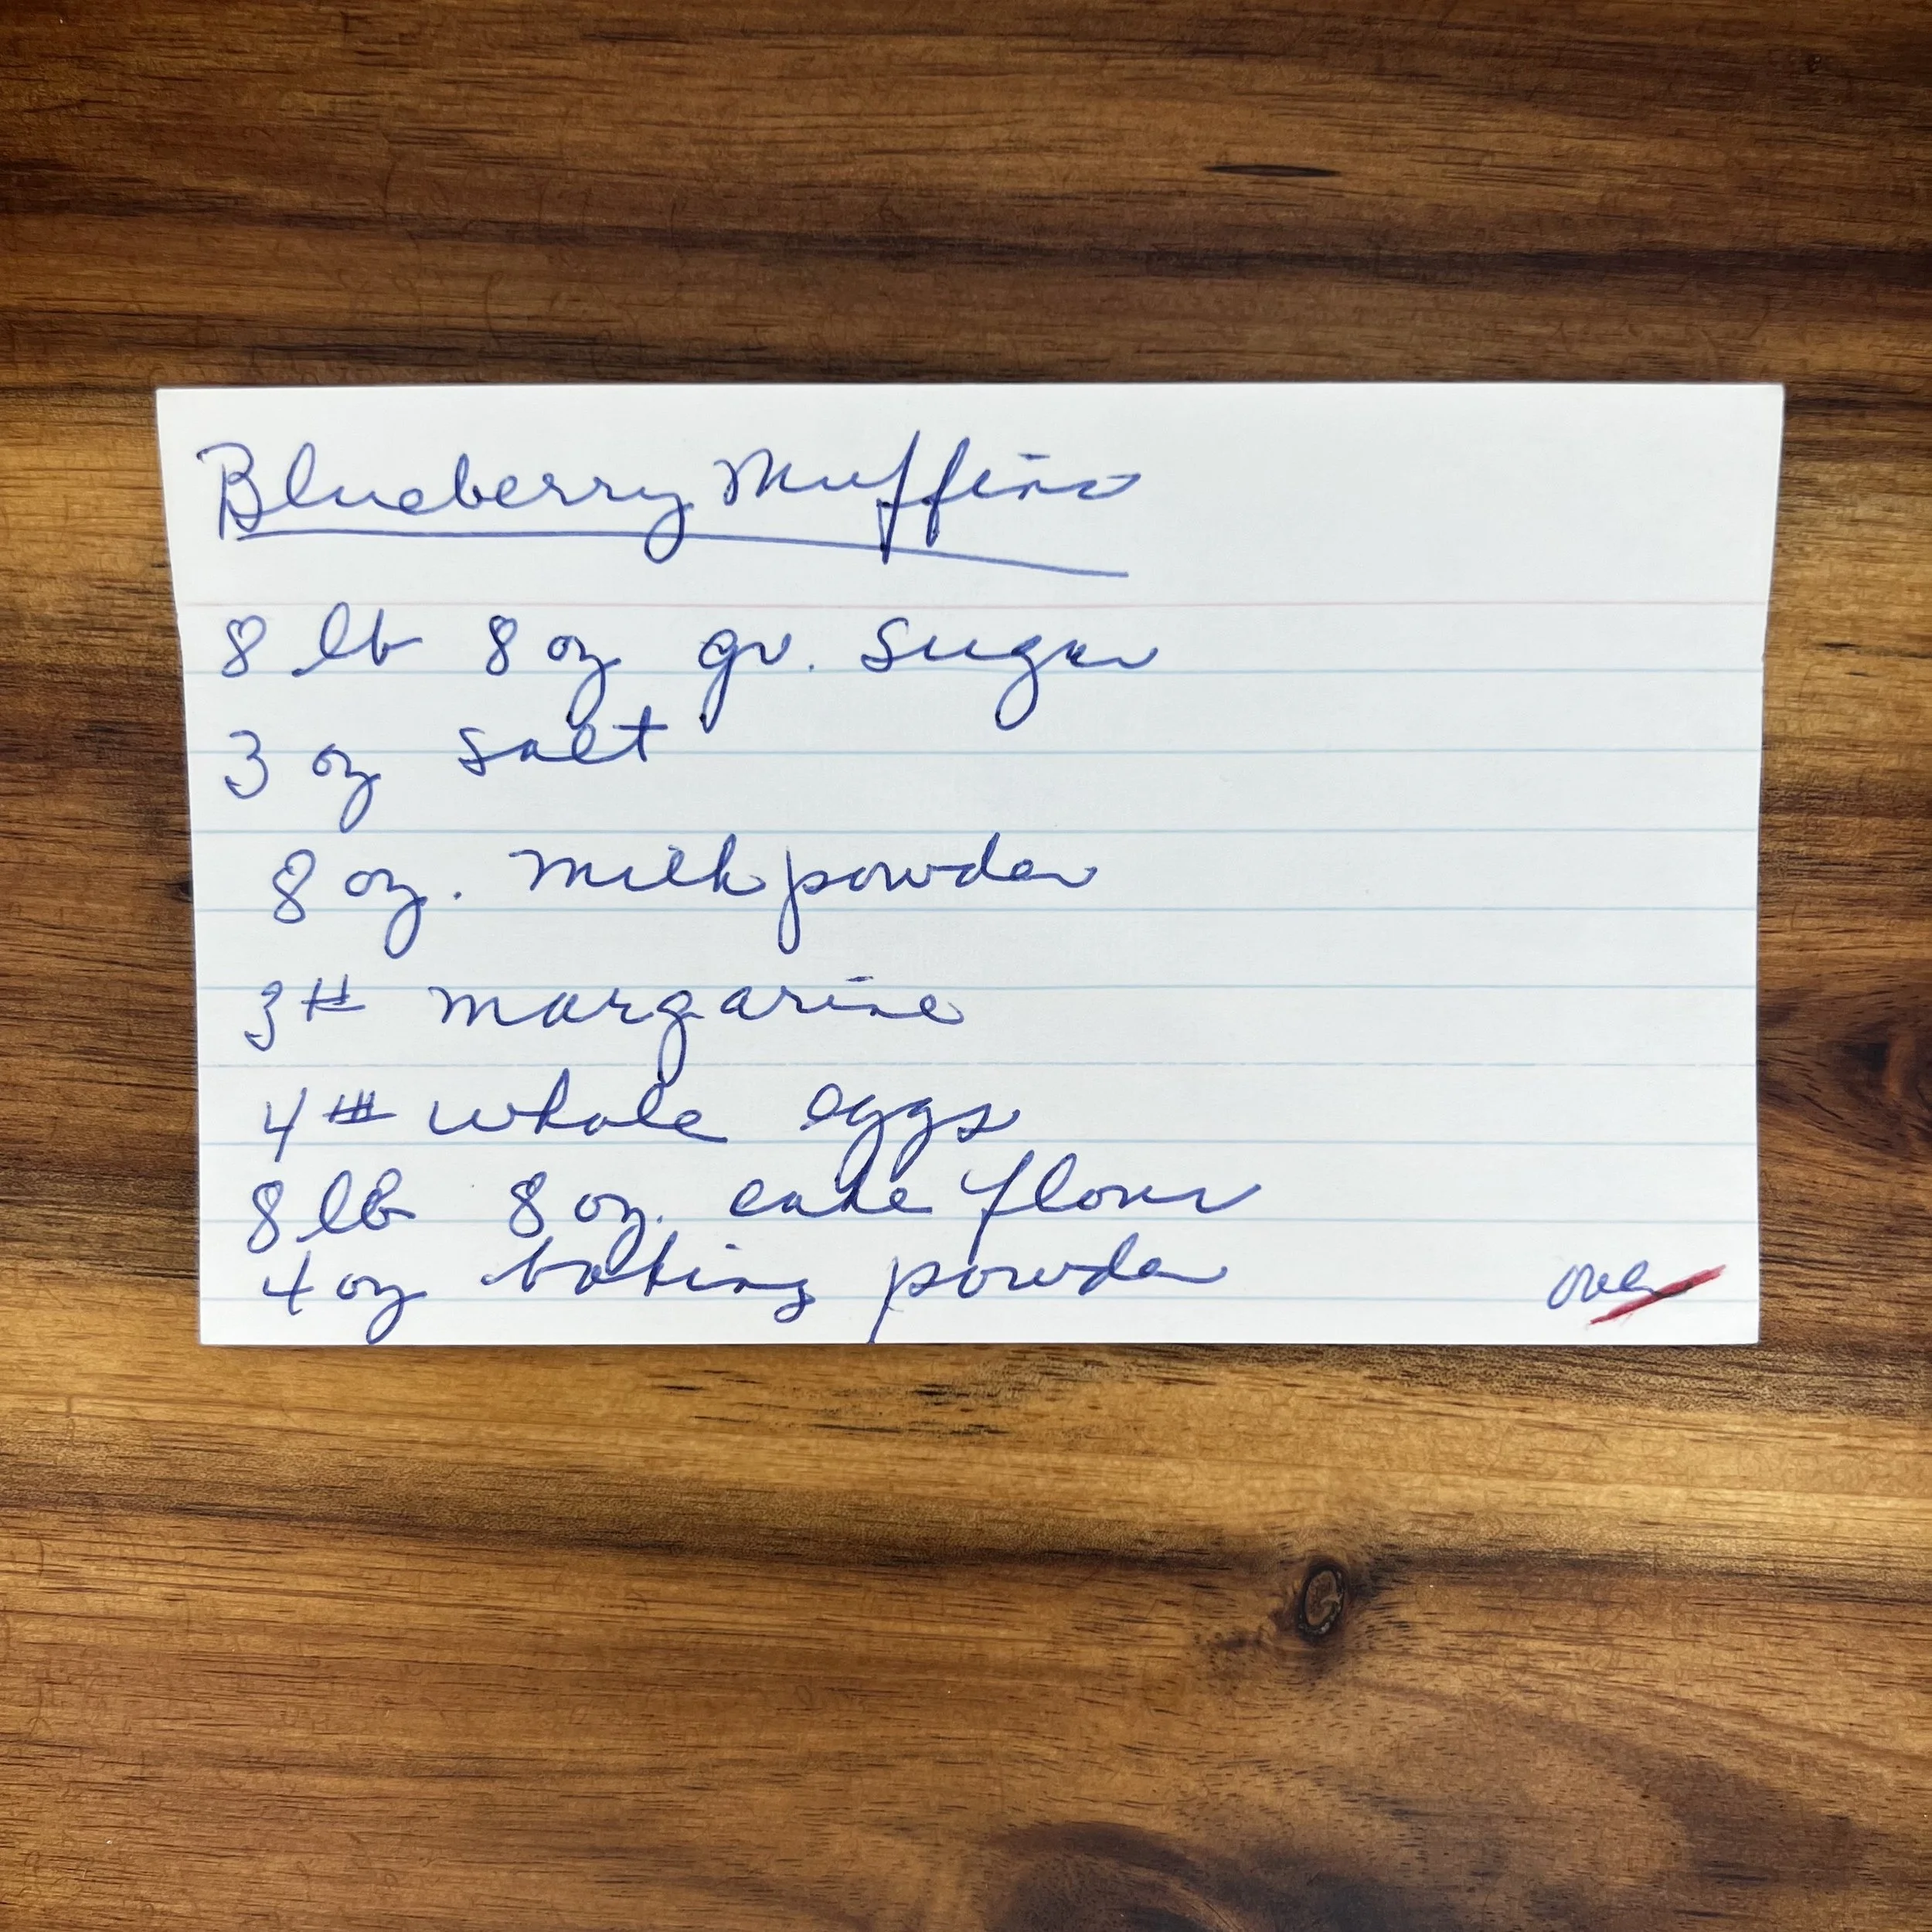 Blueberry Muffins
8 lb 8 oz gr. sugar
3 oz salt
8 oz. milk powder
3# margarine
4# whole eggs
8 lb 8 oz. cake flour
4 oz baking powder
over